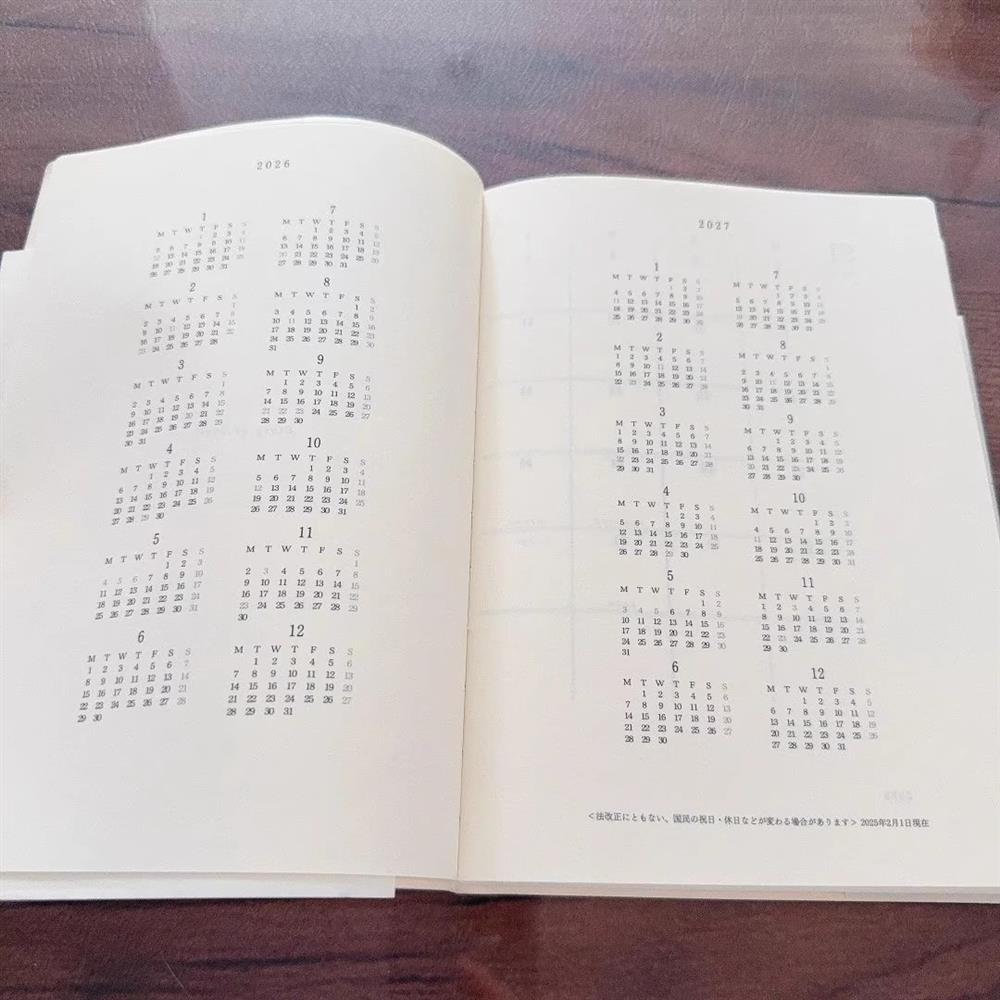 2026
1
M T W T F S S
1 2 3 4
5 6 7 8 9 10 11
12 13 14 15 16 17 18
19 20 21 22 23 24 25
26 27 28 29 30 31
2
M T W T F S S
1
2 3 4 5 6 7 8
9 10 11 12 13 14 15
16 17 18 19 20 21 22
23 24 25 26 27 28
3
M T W T F S S
1
2 3 4 5 6 7 8
9 10 11 12 13 14 15
16 17 18 19 20 21 22
23 24 25 26 27 28 29
30 31
4
M T W T F S S
1 2 3 4 5
6 7 8 9 10 11 12
13 14 15 16 17 18 19
20 21 22 23 24 25 26
27 28 29 30
5
M T W T F S S
1 2 3
4 5 6 7 8 9 10
11 12 13 14 15 16 17
18 19 20 21 22 23 24
25 26 27 28 29 30 31
6
M T W T F S S
1 2 3 4 5 6 7
8 9 10 11 12 13 14
15 16 17 18 19 20 21
22 23 24 25 26 27 28
29 30
7
M T W T F S S
1 2 3 4 5
6 7 8 9 10 11 12
13 14 15 16 17 18 19
20 21 22 23 24 25 26
27 28 29 30 31
8
M T W T F S S
1 2
3 4 5 6 7 8 9
10 11 12 13 14 15 16
17 18 19 20 21 22 23
24 25 26 27 28 29 30
31
9
M T W T F S S
1 2 3 4 5 6
7 8 9 10 11 12 13
14 15 16 17 18 19 20
21 22 23 24 25 26 27
28 29 30
10
M T W T F S S
1 2 3 4
5 6 7 8 9 10 11
12 13 14 15 16 17 18
19 20 21 22 23 24 25
26 27 28 29 30 31
11
M T W T F S S
1
2 3 4 5 6 7 8
9 10 11 12 13 14 15
16 17 18 19 20 21 22
23 24 25 26 27 28 29
30
12
M T W T F S S
1 2 3 4 5 6
7 8 9 10 11 12 13
14 15 16 17 18 19 20
21 22 23 24 25 26 27
28 29 30 31
2027
1
M T W T F S S
1 2 3
4 5 6 7 8 9 10
11 12 13 14 15 16 17
18 19 20 21 22 23 24
25 26 27 28 29 30 31
2
M T W T F S S
1 2 3 4 5 6 7
8 9 10 11 12 13 14
15 16 17 18 19 20 21
22 23 24 25 26 27 28
3
M T W T F S S
1 2 3 4 5 6 7
8 9 10 11 12 13 14
15 16 17 18 19 20 21
22 23 24 25 26 27 28
29 30 31
4
M T W T F S S
1 2 3 4
5 6 7 8 9 10 11
12 13 14 15 16 17 18
19 20 21 22 23 24 25
26 27 28 29 30
5
M T W T F S S
1 2
3 4 5 6 7 8 9
10 11 12 13 14 15 16
17 18 19 20 21 22 23
24 25 26 27 28 29 30
31
6
M T W T F S S
1 2 3 4 5 6
7 8 9 10 11 12 13
14 15 16 17 18 19 20
21 22 23 24 25 26 27
28 29 30
7
M T W T F S S
1 2 3 4
5 6 7 8 9 10 11
12 13 14 15 16 17 18
19 20 21 22 23 24 25
26 27 28 29 30 31
8
M T W T F S S
1
2 3 4 5 6 7 8
9 10 11 12 13 14 15
16 17 18 19 20 21 22
23 24 25 26 27 28 29
30 31
9
M T W T F S S
1 2 3 4 5
6 7 8 9 10 11 12
13 14 15 16 17 18 19
20 21 22 23 24 25 26
27 28 29 30
10
M T W T F S S
1 2 3
4 5 6 7 8 9 10
11 12 13 14 15 16 17
18 19 20 21 22 23 24
25 26 27 28 29 30 31
11
M T W T F S S
1 2 3 4 5 6 7
8 9 10 11 12 13 14
15 16 17 18 19 20 21
22 23 24 25 26 27 28
29 30
12
M T W T F S S
1 2 3 4 5
6 7 8 9 10 11 12
13 14 15 16 17 18 19
20 21 22 23 24 25 26
27 28 29 30 31
＜法改正にともない、国民の祝日・休日などが変わる場合があります＞ 2025年2月1日現在